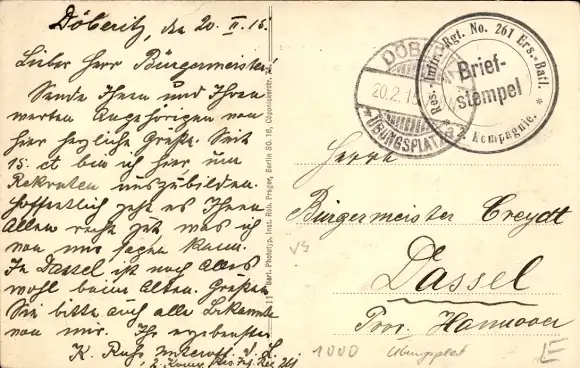 Döberitz, den 20. II. 15.
Lieber Herr Bürgermeister!
Sende Ihnen und Ihren
werten Angehörigen von
hier herzliche Grüße. Seit
15. ct bin ich hier um
Rekruten auszubilden.
Hoffentlich geht es Ihnen
Allen recht gut was ich
von mir sagen kann.
In Dassel ist noch Alles
wohl beim Alten. Grüßen
Sie bitte auch alle Bekannte
von mir. Ihr ergebenster
K. Unteroff. d. L.
2. Komp. Res. Rgt 261
11 Gart. Phototyp. Inst. Rob. Prager, Berlin SO. 16, Cöpenickerstr.
DÖB
20.2.15
*ÜBUNGSPLATZ*
Res.-Inftr.-Rgt. No. 261 Ers.-Batl.
Brief-
stempel
* 2. Kompagnie. *
Herrn
Bürgermeister Creydt
Dassel
Prov. Hannover
1000 Übungsplatz
E